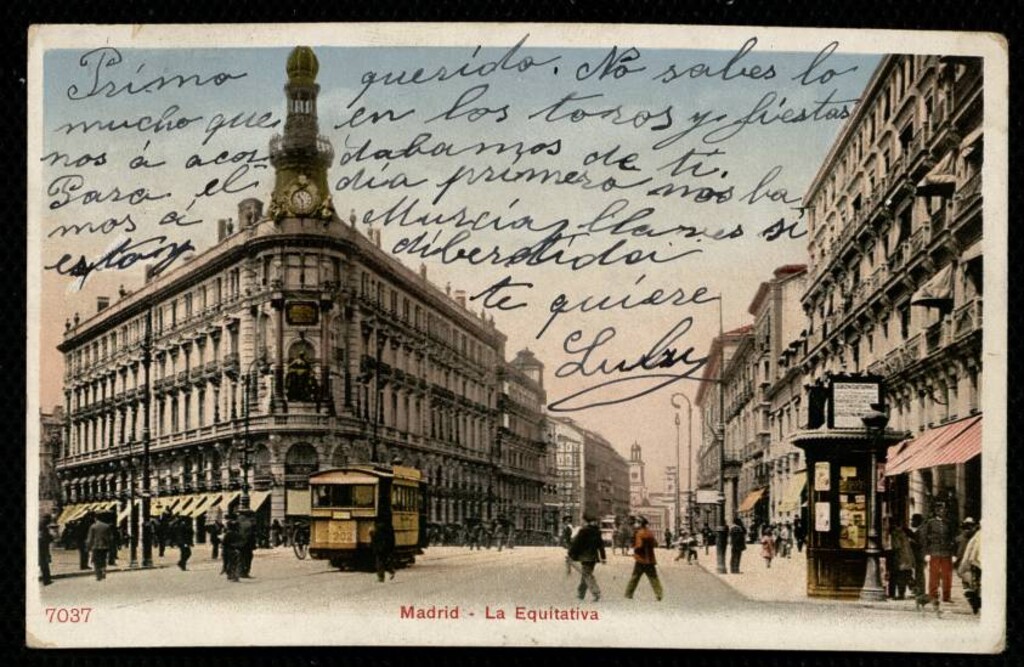 Primo querido. No sabes lo
mucho que en los toros y fiestas
nos á acordabamos de ti.
Para el dia primero nos ba
mos á Murcia, si
estoy diberdida
te quiere
Luly
7037
Madrid - La Equitativa
202